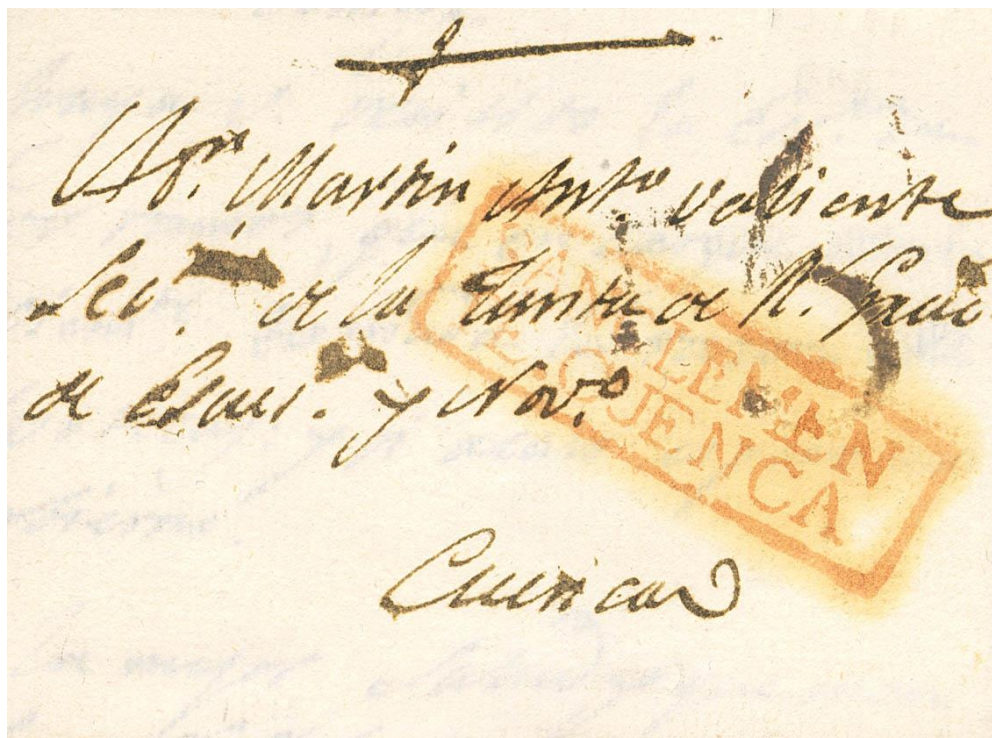 A Dn. Martin Anto. valiente
Seco. de la Junta de Rl.
de y Novo.
SAN CLEMEN
E. CUENCA
Cuenca